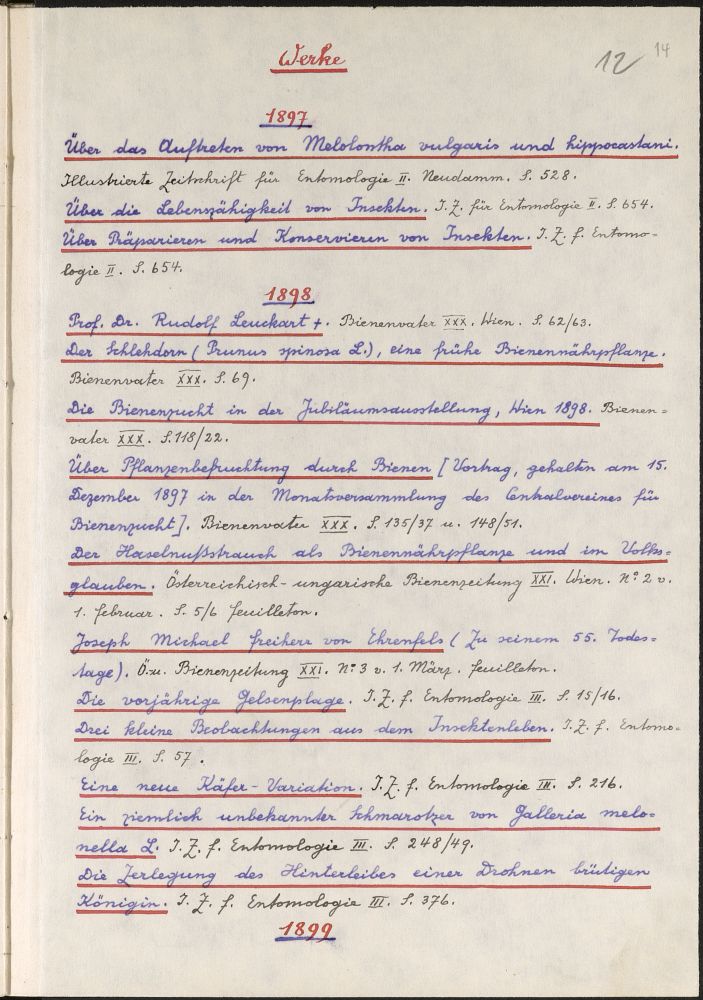 Werke
12
14
1897
Über das Auftreten von Melolontha vulgaris und hippocastani.
Illustrierte Zeitschrift für Entomologie II. Neudamm. S. 528.
Über die Lebenszähigkeit von Insekten. I. Z. für Entomologie II. S. 654.
Über Präparieren und Konservieren von Insekten. I. Z. f. Entomo-
logie II. S. 654.
1898
Prof. Dr. Rudolf Leuckart +. Bienenvater XXX. Wien. S. 62/63.
Der Schlehdorn (Prunus spinosa L.), eine frühe Bienennährpflanze.
Bienenvater XXX. S. 69.
Die Bienenzucht in der Jubiläumsausstellung, Wien 1898. Bienen=
vater XXX. S. 118/22.
Über Pflanzenbefruchtung durch Bienen [Vortrag, gehalten am 15.
Dezember 1897 in der Monatsversammlung des Centralvereines für
Bienenzucht]. Bienenvater XXX. S. 135/37 u. 148/51.
Der Haselnußstrauch als Bienennährpflanze und im Volks=
glauben. Österreichisch-ungarische Bienenzeitung XXI. Wien. No 2 v.
1. Februar. S. 5/6 Feuilleton.
Joseph Michael Freiherr von Ehrenfels (Zu seinem 55. Todes=
tage). Ö.-u. Bienenzeitung XXI. No 3 v. 1. März. Feuilleton.
Die vorjährige Gelsenplage. I. Z. f. Entomologie III. S. 15/16.
Drei kleine Beobachtungen aus dem Insektenleben. I. Z. f. Entomo=
logie III. S. 57.
Eine neue Käfer-Variation. I. Z. f. Entomologie III. S. 216.
Ein ziemlich unbekannter Schmarotzer von Galleria melo=
nella L. I. Z. f. Entomologie III. S. 248/49.
Die Zerlegung des Hinterleibes einer Drohnen brütigen
Königin. I. Z. f. Entomologie III. S. 376.
1899